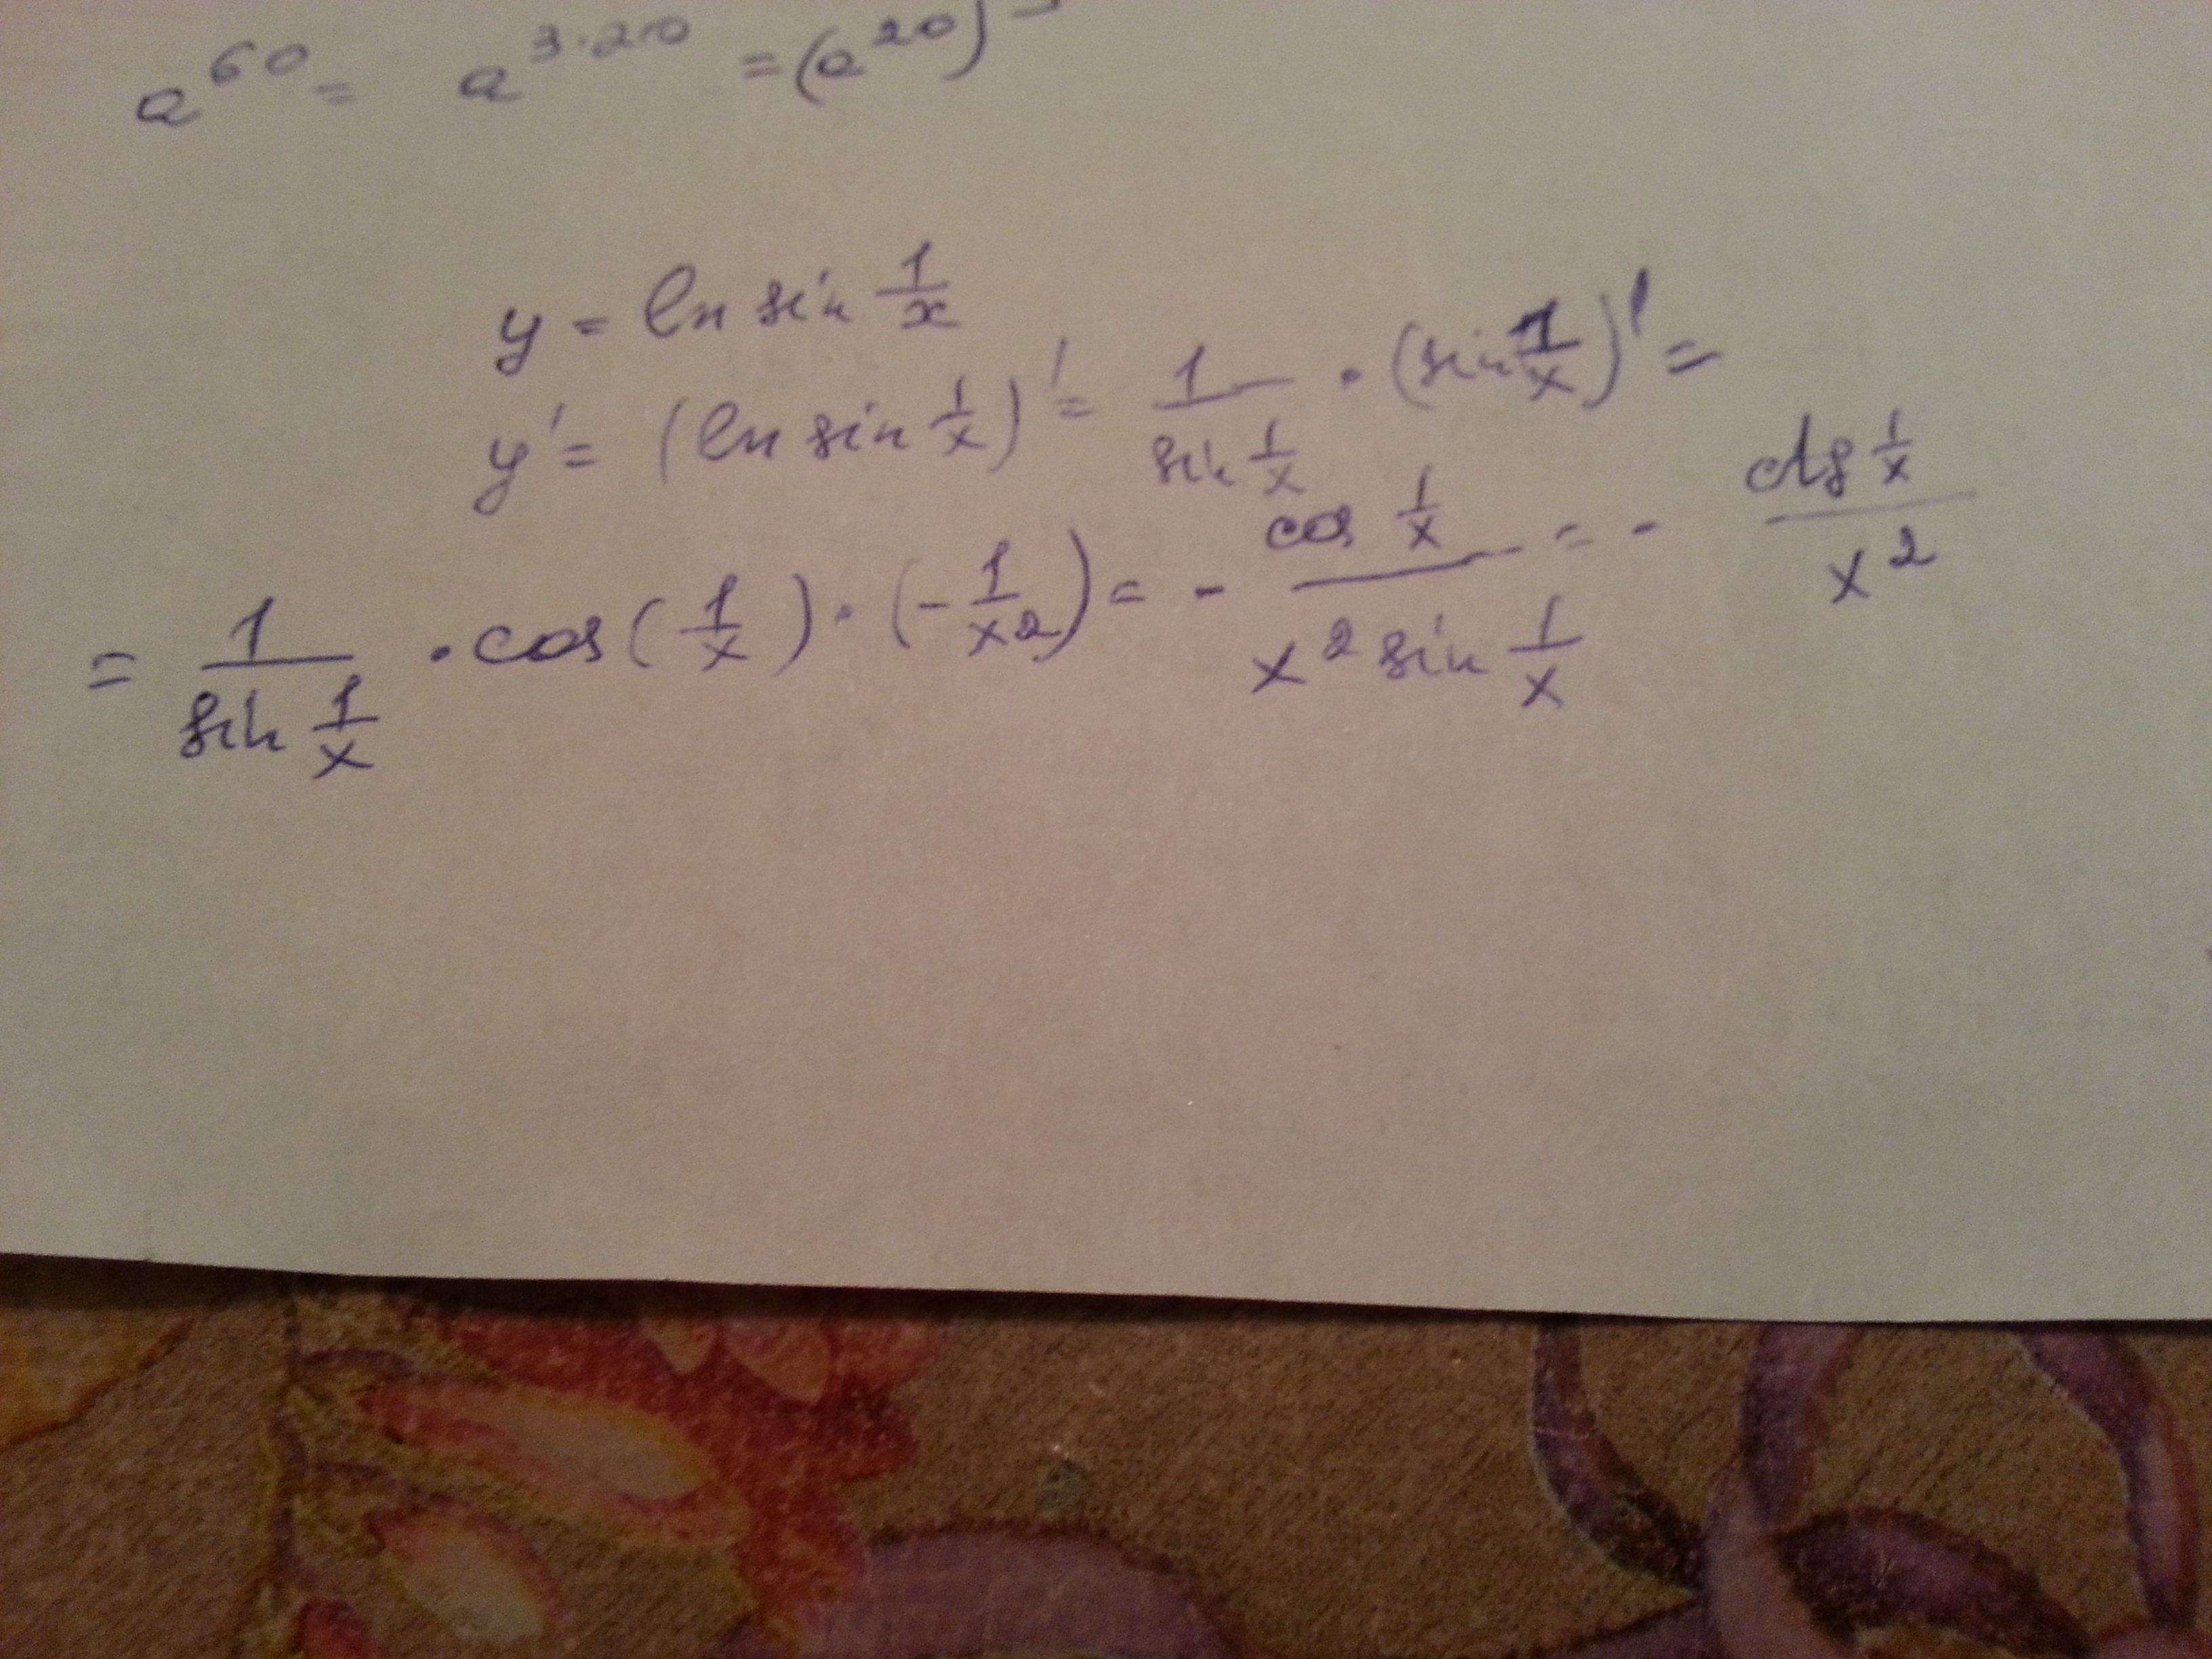 a^60 = a^3·20 = (a^20)
y = ln sin 1/x
y' = (ln sin 1/x)' = 1/(sin 1/x) · (sin 1/x)' =
= 1/(sin 1/x) · cos(1/x) · (-1/x^2) = - (cos 1/x)/(x^2 sin 1/x) = - (ctg 1/x)/(x^2)